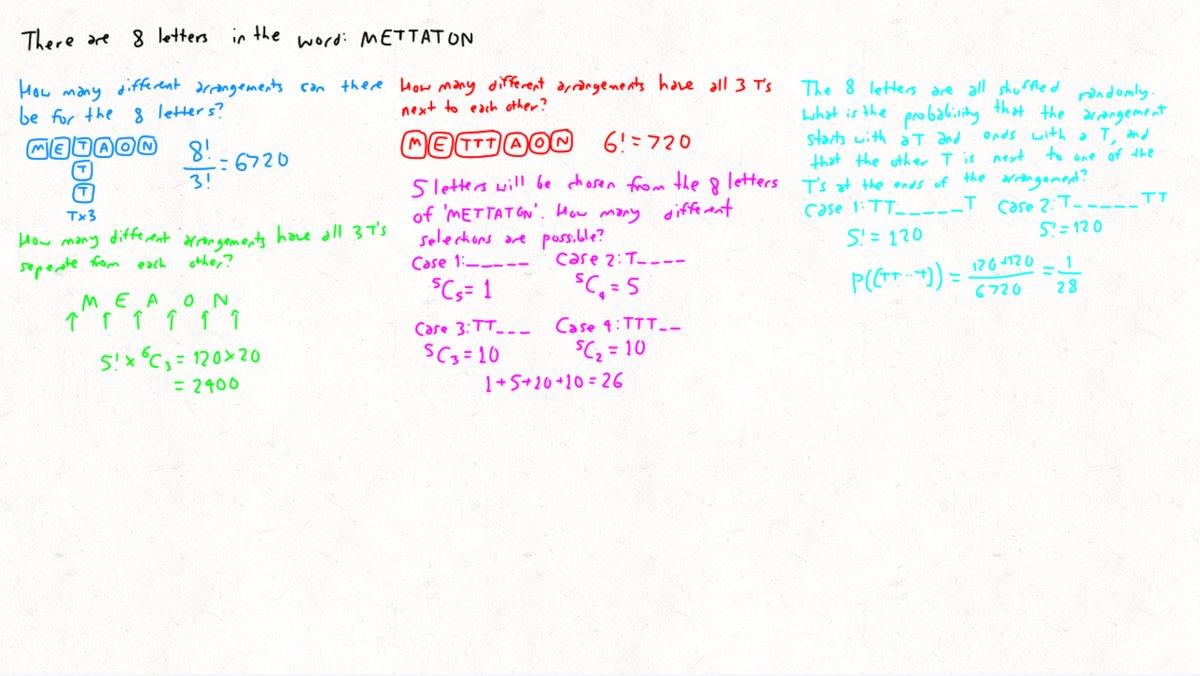 There are 8 letters in the word: METTATON
How many different arrangements can there
be for the 8 letters?
M E T A O N
T
T
T×3
8!/3! = 6720
How many different arrangements have all 3 T's
seperate from each other?
M E A O N
↑ ↑ ↑ ↑ ↑ ↑
5! × ⁶C₃ = 120 × 20
= 2400
How many different arrangements have all 3 T's
next to each other?
M E TTT A O N 6! = 720
5 letters will be chosen from the 8 letters
of 'METTATON'. How many different
selections are possible?
Case 1: _ _ _ _ _ Case 2: T _ _ _ _
⁵C₅ = 1 ⁵C₄ = 5
Case 3: TT _ _ _ Case 4: TTT _ _
⁵C₃ = 10 ⁵C₂ = 10
1+5+10+10 = 26
The 8 letters are all shuffled randomly.
What is the probability that the arrangement
starts with a T and ends with a T, and
that the other T is next to one of the
T's at the ends of the arrangement?
Case 1: TT _ _ _ _ _ T Case 2: T _ _ _ _ _ TT
5! = 120 5! = 120
P((TT...T)) = (120+120)/6720 = 1/28